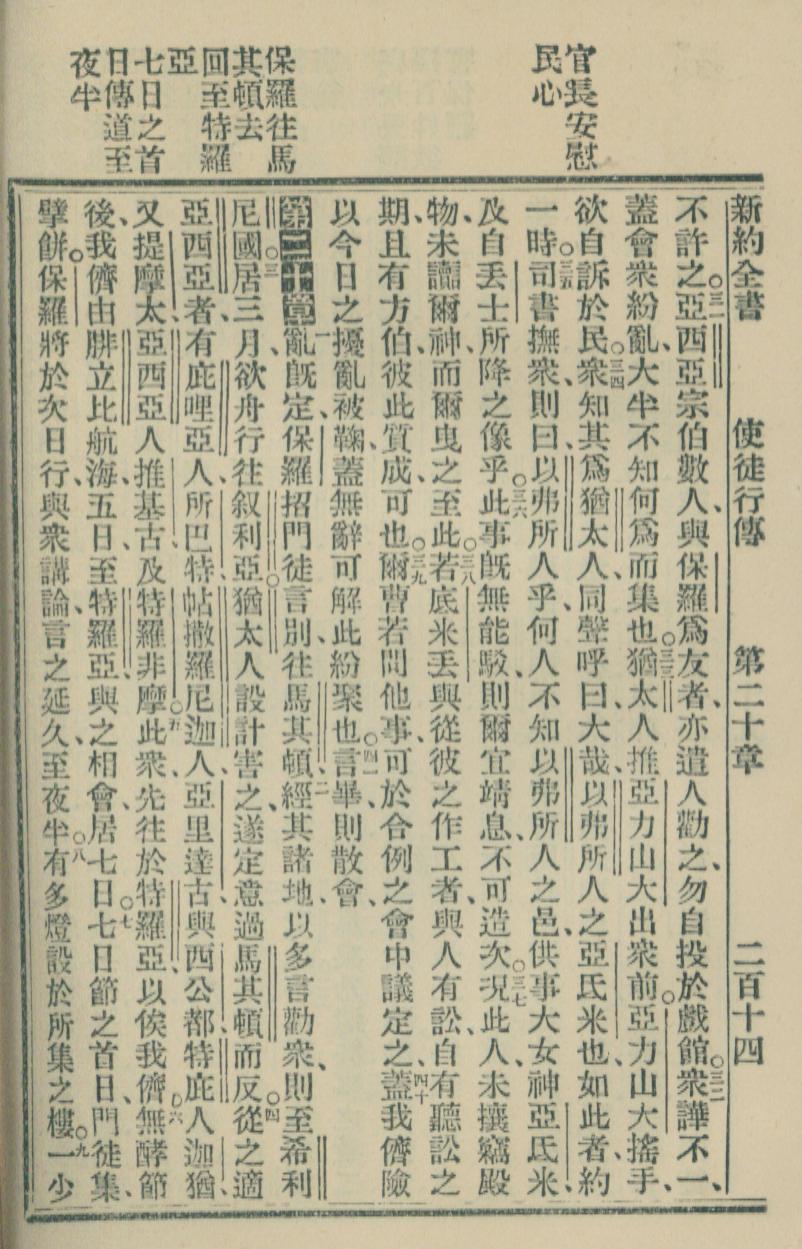 新約全書 使徒行傳 第二十章 二百十四
官長安慰
民心
保羅往馬
其頓去
回至特羅
亞
七日之首
日傳道至
夜半
不許之、○三一亞西亞宗伯數人、與保羅爲友者、亦遣人勸之、勿自投於戲館、○三二衆譁不一、
蓋會衆紛亂、大半不知何爲而集也、○三三猶太人推亞力山大出衆前、○亞力山大搖手、
欲自訴於民、○三四衆知其爲猶太人、同聲呼曰、大哉、以弗所人之亞氐米也、如此者約
一時、○三五司書撫衆、則曰、以弗所人乎、何人不知以弗所人之邑、供事大女神亞氐米、
及自丢士所降之像乎、○三六此事旣無能駁、則爾宜靖息、不可造次、○三七况此人、未攘竊殿
物、未讟爾神、而爾曳之至此、○三八若底米丢與從彼之作工者、與人有訟、自有聽訟之
期、且有方伯、彼此質成、可也、○三九爾曹若問他事、可於合例之會中議定之、四十蓋我儕險
以今日之擾亂被鞠、蓋無辭可解此紛聚也、○四一言畢、則散會、
第二十章 一亂旣定、保羅招門徒言別、往馬其頓、二經其諸地、以多言勸衆、則至希利
尼國、○三居三月、欲舟行往叙利亞、○猶太人設計害之、遂定意過馬其頓而反、○四從之適
亞西亞者、有庇哩亞人所巴特、帖撒羅尼迦人、亞里達古、與西公都、特庇人迦猶、
又提摩太、亞西亞人推基古、及特羅非摩、○五此衆先往於特羅亞、以俟我儕、○六無酵節
後、我儕由腓立比航海、五日至特羅亞、與之相會、居七日、○七七日節之首日、門徒集、
擘餅、保羅將於次日行、與衆講論、言之延久、至夜半、○八有多燈設於所集之樓、○九一少